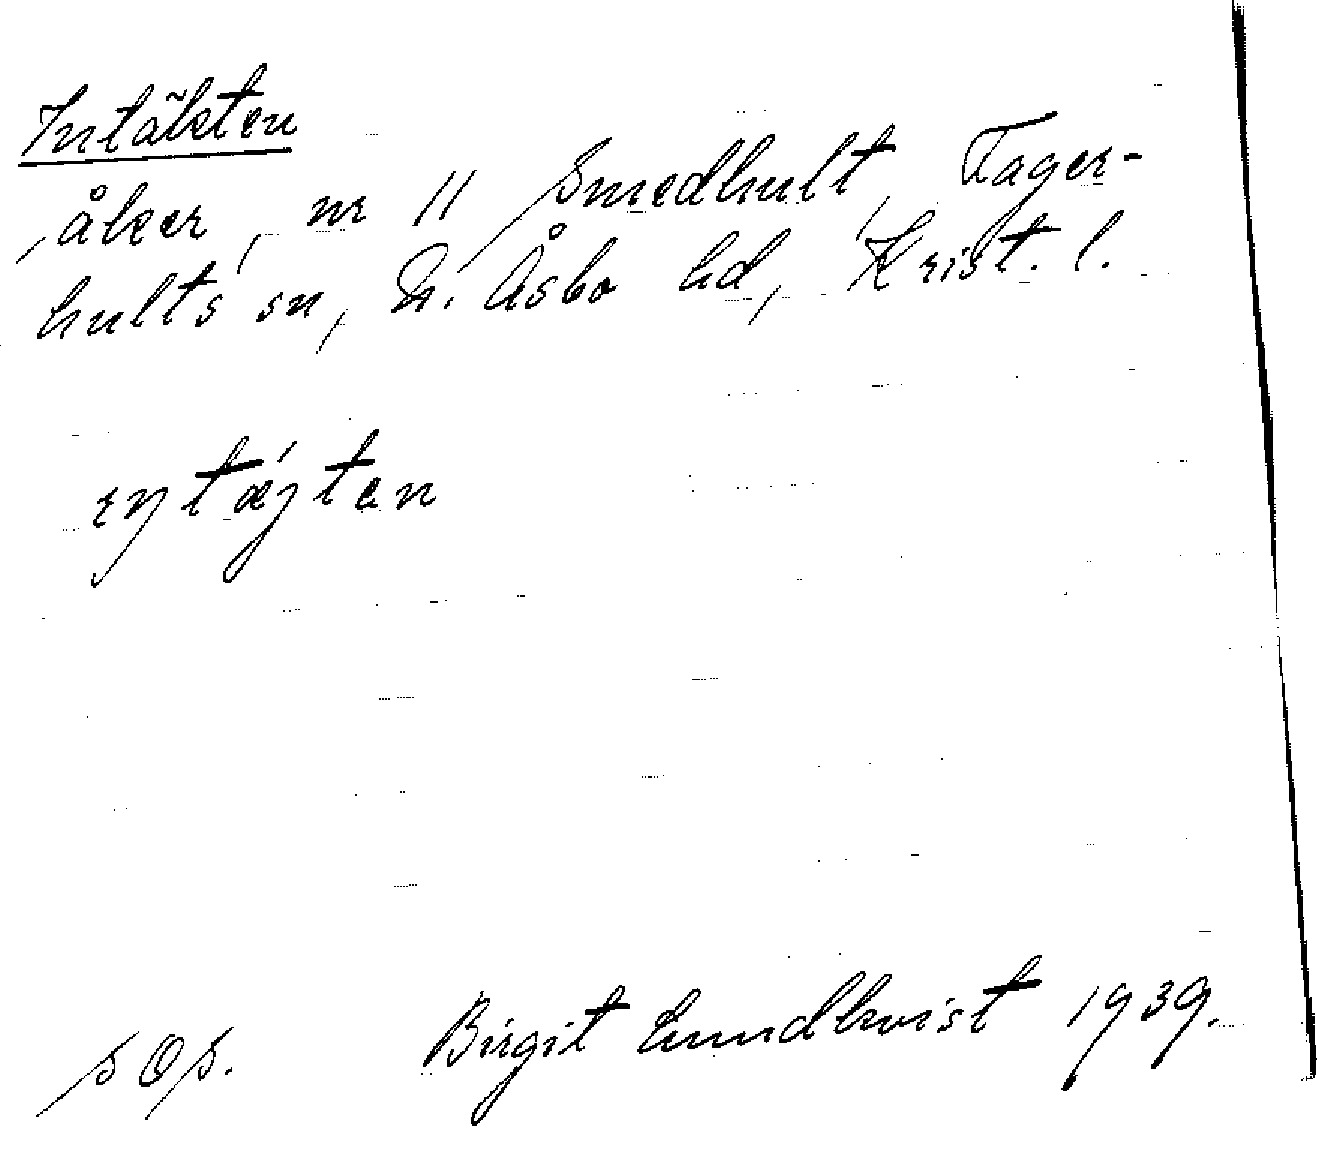 Intäkten
åker, nr 11 Smedhult, Fager-
hults sn, N. Åsbo hd, Krist. l.
Birgit Lundkvist 1939.